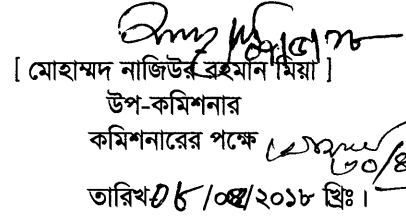 [ মোহাম্মদ নাজিউর রহমান মিয়া ]
উপ-কমিশনার
কমিশনারের পক্ষে
তারিখ ০৮/০৫/২০১৮ খ্রিঃ।